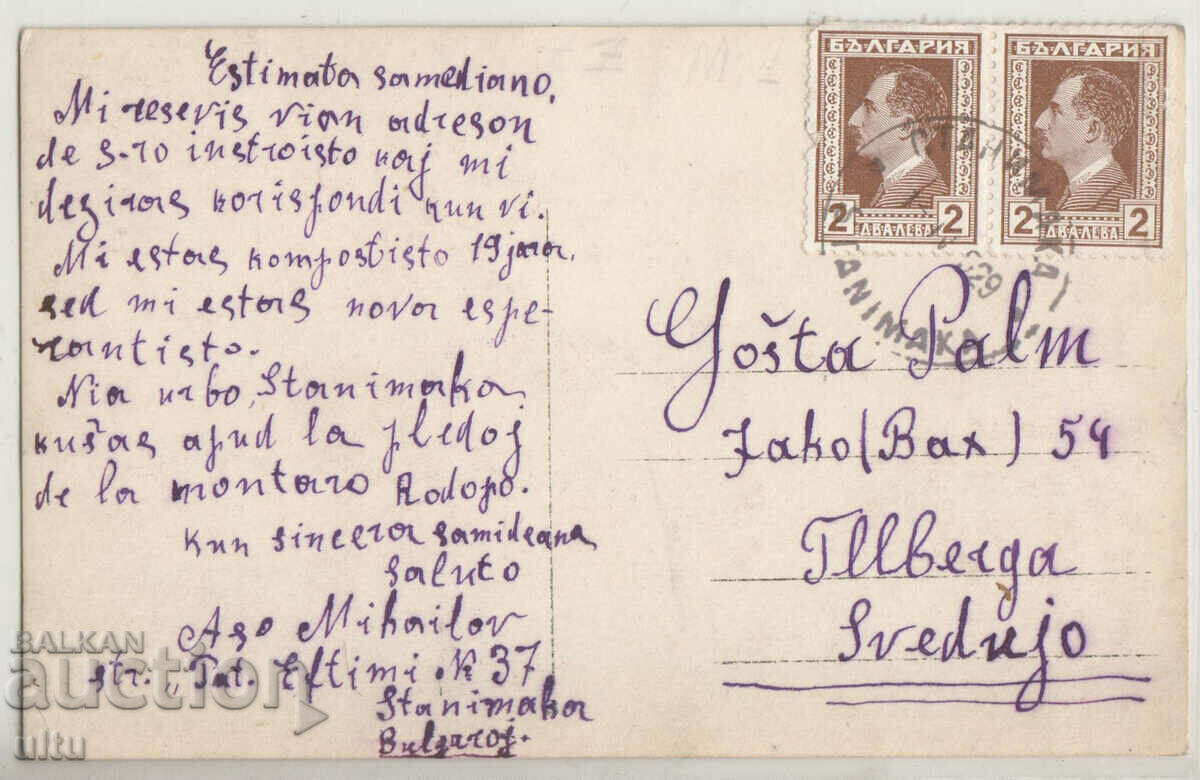 Estimata samediano,
Mi resevis vian adreson
de s-ro instroisto kaj mi
deziras korispondi kun vi.
Mi estas kompostisto 19 jara,
sed mi estas nova espe-
rantisto.
Nia urbo, Stanimaka
kušas apud la pledoj
de la montaro Rodopo.
Kun sincera samideana
saluto
Aso Mihailov
str. „Pat. Eftimi № 37
Stanimaka
Bulgaroj.
БЪЛГАРИЯ
2 ДВА ЛЕВА 2
БЪЛГАРИЯ
2 ДВА ЛЕВА 2
СТАНИМАКА
STANIMAKA
29
Gošta Palm
Jako (Bax) 54
Tllberga
Svedujo
BALKAN
auction
ultu